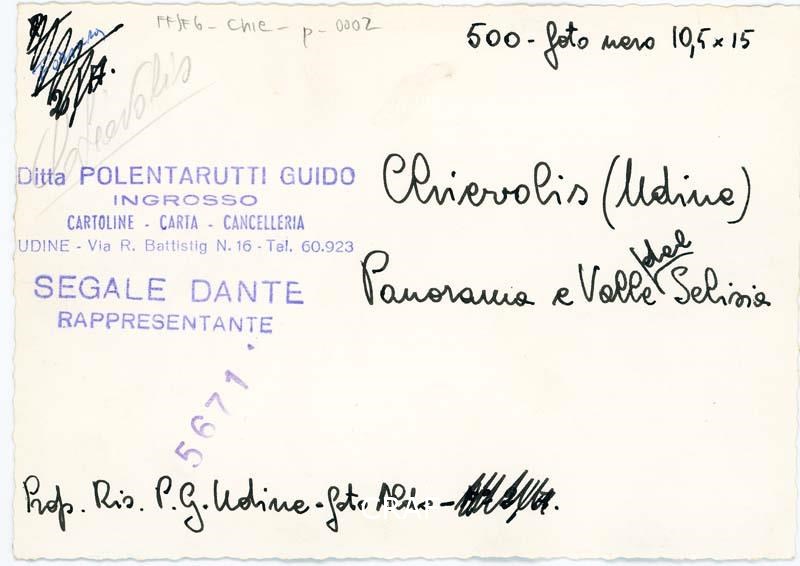 FF/FG - Chie - p - 0002
500 - foto nero 10,5 x 15
Chievolis
Ditta POLENTARUTTI GUIDO
INGROSSO
CARTOLINE - CARTA - CANCELLERIA
UDINE - Via R. Battistig N. 16 - Tel. 60.923
SEGALE DANTE
RAPPRESENTANTE
Chievolis (Udine)
Panorama e Valle del Selisia
5671
Prop. Ris. P. G. Udine - foto